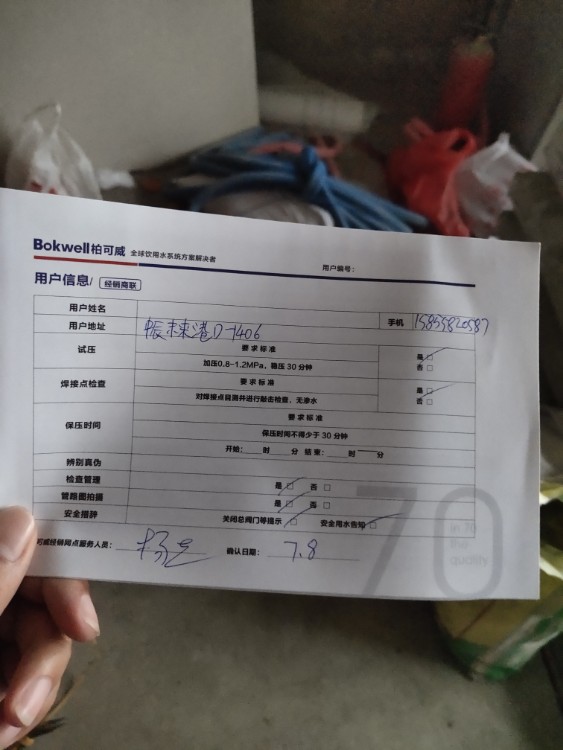 Bokwell柏可威 全球饮用水系统方案解决者
用户编号:
用户信息/ 经销商联
用户姓名
手机 15855820587
用户地址 振未来港D-1406
试压 要求标准 是□
加压0.8-1.2MPa，稳压30分钟 否□
焊接点检查 要求标准 是□
对焊接点目测并进行敲击检查，无渗水 否□
保压时间 要求标准
保压时间不得少于30分钟
开始: 时 分 结束: 时 分
辨别真伪
检查管理 是□ 否□
管路图拍摄 是□ 否□
安全措辞 关闭总阀门等提示□ 安全用水告知□
可威经销网点服务人员: 确认日期: 7.8
70
in 70
the
quality